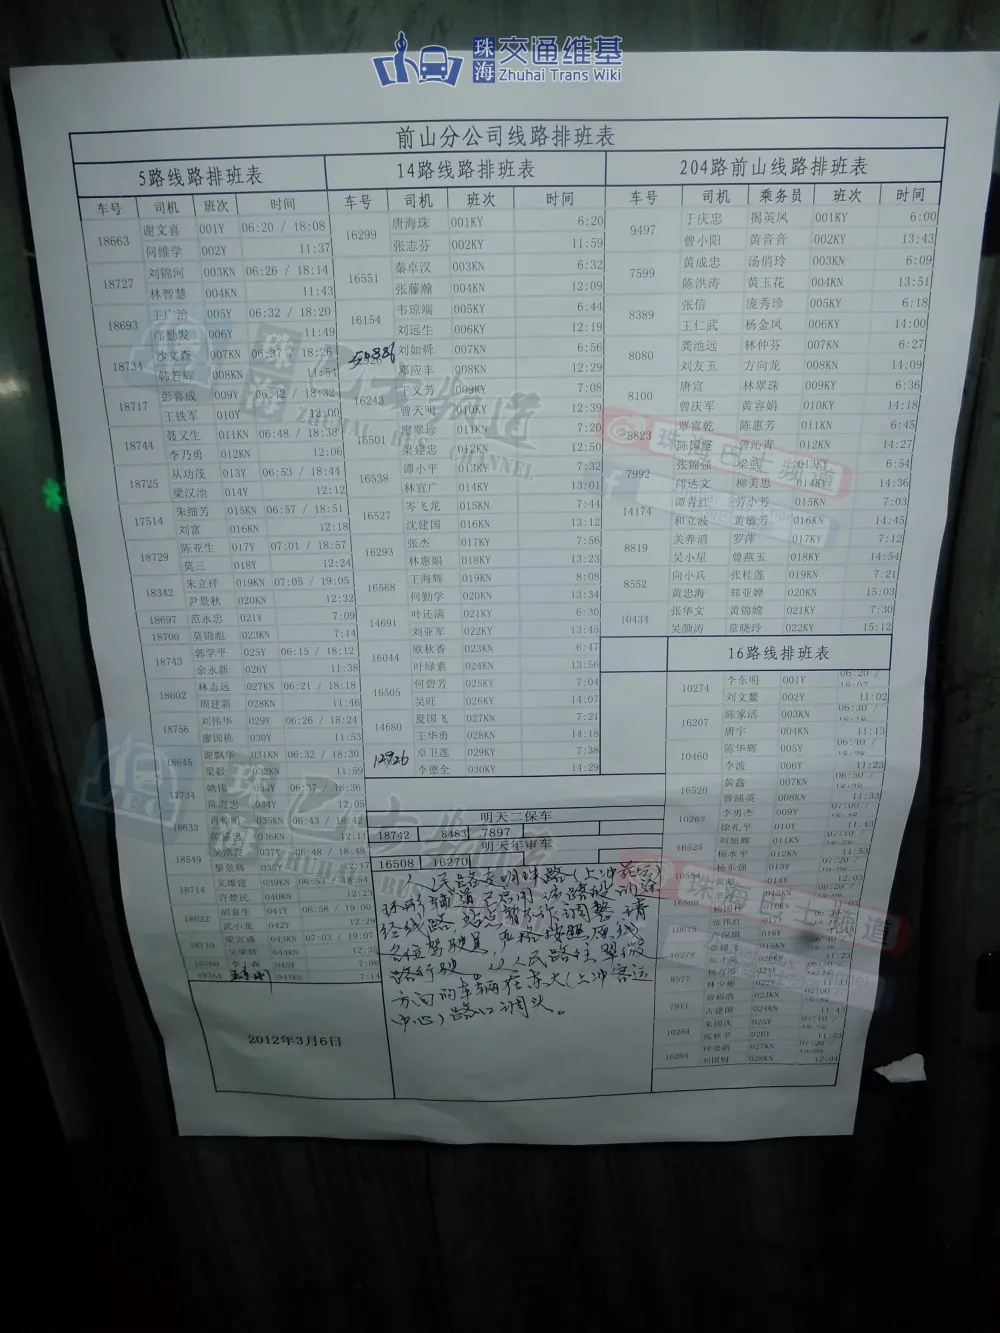 珠海 交通维基
Zhuhai Trans Wiki
前山分公司线路排班表
5路线路排班表 14路线路排班表 204路前山线路排班表
车号 司机 班次 时间 车号 司机 班次 时间 车号 司机 乘务员 班次 时间
18663 谢文喜 001Y 06:20 / 18:08 16299 唐海珠 001KY 6:20 9497 于庆忠 揭英凤 001KY 6:00
何维学 002Y 11:37 张志芬 002KY 11:59 曾小阳 黄音音 002KY 13:43
18727 刘锦河 003KN 06:26 / 18:14 16551 秦卓汉 003KN 6:32 7599 黄成忠 汤俏玲 003KN 6:09
林智慧 004KN 11:43 张藤瀚 004KN 12:09 陈洪涛 黄玉花 004KN 13:51
18693 王广治 005Y 06:32 / 18:20 16154 韦琼端 005KY 6:44 8389 张信 庞秀珍 005KY 6:18
邝勤发 006Y 11:49 刘远生 006KY 12:19 王仁武 杨金凤 006KY 14:00
18734 沙文森 007KN 06:37 / 18:26 刘如舜 007KN 6:56 8080 龚池远 林仲芬 007KN 6:27
韩若辉 008KN 11:54 邓应丰 008KN 12:29 刘友玉 方向龙 008KN 14:09
18717 彭喜成 009Y 06:42 / 18:32 16243 王义芳 009KY 7:08 8100 唐宣 林翠珠 009KY 6:36
王铁军 010Y 12:00 曾天明 010KY 12:39 曾庆军 黄容娟 010KY 14:18
18744 聂义生 011KN 06:48 / 18:38 16501 廖翠珍 011KN 7:20 8823 覃富乾 陈惠芳 011KN 6:45
李乃勇 012KN 12:06 梁建忠 012KN 12:50 陈国坚 曾沁青 012KN 14:27
18725 从功茂 013Y 06:53 / 18:44 16538 谭小平 013KY 7:32 7992 张锦强 梁燕 013KY 6:54
梁汉池 014Y 12:12 林宜广 014KY 13:01 邝达文 柳美思 014KY 14:36
17514 朱细芳 015KN 06:57 / 18:51 16527 岑飞龙 015KN 7:44 14174 谭青红 劳小芳 015KN 7:03
刘富 016KN 12:18 沈建国 016KN 13:12 和立波 黄敏芳 016KN 14:45
18729 陈亚生 017Y 07:01 / 18:57 16293 张杰 017KY 7:56 8819 关养滔 罗萍 017KY 7:12
莫三 018Y 12:24 林惠娟 018KY 13:23 吴小星 曾燕玉 018KY 14:54
18342 朱立祥 019KN 07:05 / 19:05 16568 王海辉 019KN 8:08 8552 向小兵 张桂莲 019KN 7:21
尹景秋 020KN 12:32 何勤学 020KN 13:34 黄忠海 郑亚婵 020KN 15:03
18697 范永忠 021Y 7:09 14691 叶还满 021KY 6:30 10434 张华文 黄锦嫦 021KY 7:30
18700 莫锦彪 023KN 7:14 刘亚军 022KY 13:45 吴颜涛 章晓玲 022KY 15:12
18743 郭学平 025Y 06:15 / 18:12 16044 欧秋香 023KN 6:47
余永新 026Y 11:38 叶绿素 024KN 13:56
16路线排班表
18602 林志远 027KN 06:21 / 18:18 16505 何碧芳 025KY 7:04 10274 李东明 001Y 06:20 /
周建新 028KN 11:46 吴旺 026KY 14:07 刘文鳌 002Y 11:02
18756 刘伟华 029Y 06:26 / 18:24 14680 夏国飞 027KN 7:21 16207 陈家活 003KN 06:30 /
廖国栋 030Y 11:53 王华勇 028KN 14:18 唐宇 004KN 11:13
18645 谢飘华 031KN 06:32 / 18:30 12926 卓卫莲 029KY 7:38 10460 陈华辉 005Y 06:40 /
梁毅 032KN 11:59 李德全 030KY 14:29 李波 006Y 11:23
17734 姚伟 033Y 06:37 / 18:36 16520 黄鑫 007KN 06:50 /
陈海忠 034Y 12:05 曾浦英 008KN 11:33
明天二保车
18742 8483 7897
明天年审车
16508 16270
18633 035KN 06:43 / 18:42 10267 李勇杰 009Y 07:00 /
036KN 12:11 徐礼平 010Y 11:43
18549 037Y 06:48 / 18:48 16525 刘旭辉 011KN 07:10 /
黎景标 038Y 12:17 杨水平 012KN 11:53
18714 文雄建 039KN 06:53 / 18:54 16554 杨东强 013Y 07:20 /
许楚民 040KN 12:23 014Y 12:03
18622 胡喜生 041Y 06:58 / 19:00 16569 015KN 06:20 /
武小龙 042Y 12:29 016KN 11:03
18719 梁宜盛 043KN 07:03 / 19:07 10675 017Y
吴荣辉 044KN 12:35 018Y
18760 045Y 7:08 16278 019KN
18764 7:14 020KN 11:23
8577 021Y
林少彬 022Y
7811 曾裕浩 023KN
古建国 024KN 11:43
10254 朱国庆 025Y
张秋平 026Y 11:53
16265 027KN 07:20 /
刘国明 028KN 12:04
1、人民路交明珠路(上冲花园)
环形辅道已启用,涉路段
经线路,站点暂不作调整,请
各位驾驶员,严格按照原线
路行驶。2、人民路往翠微
方向的车辆在东大(上冲客运
中心)路口调头。
2012年3月6日
珠海巴士频道
ZHUHAI BUS CHANNEL
珠海巴士频道
珠海巴士频道
ZHUHAI BUS CHANNEL
珠海巴士频道